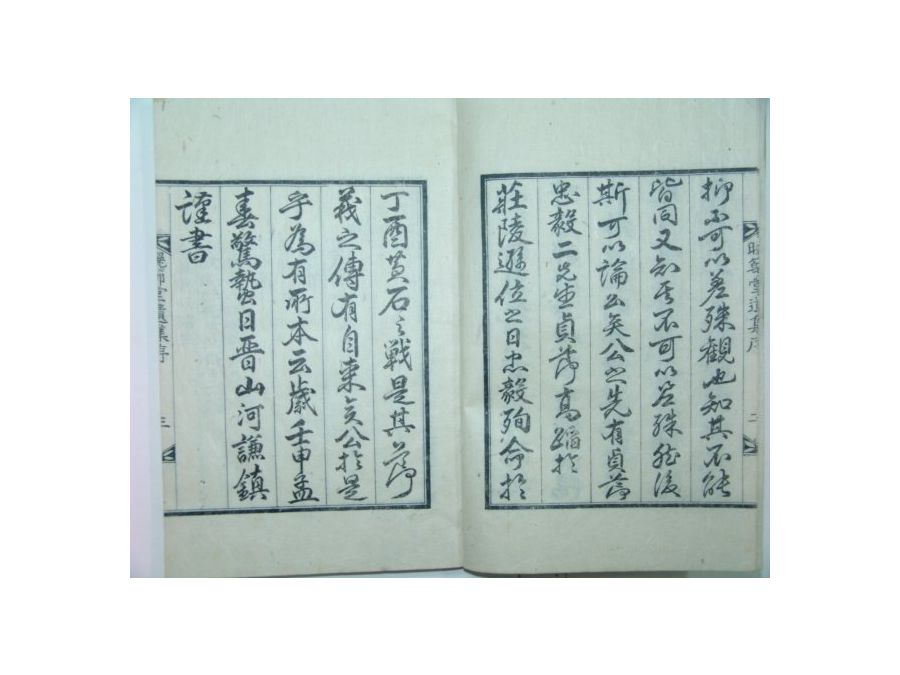 抑不可以差殊觀也知其不能
皆同又知其不可以差殊然後
斯可以論公矣公之先有貞節
忠毅二先生貞節高蹈於
莊陵遜位之日忠毅殉命於
丁酉黃石之戰是其節
義之傳有自來矣公於是
乎為有所本云歲壬申孟
春驚蟄日晉山河謙鎮
謹書
堂遺集序
二
堂遺集序
三